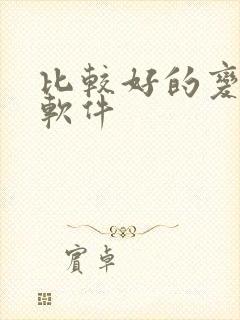 比較好的
軟件
賓卓